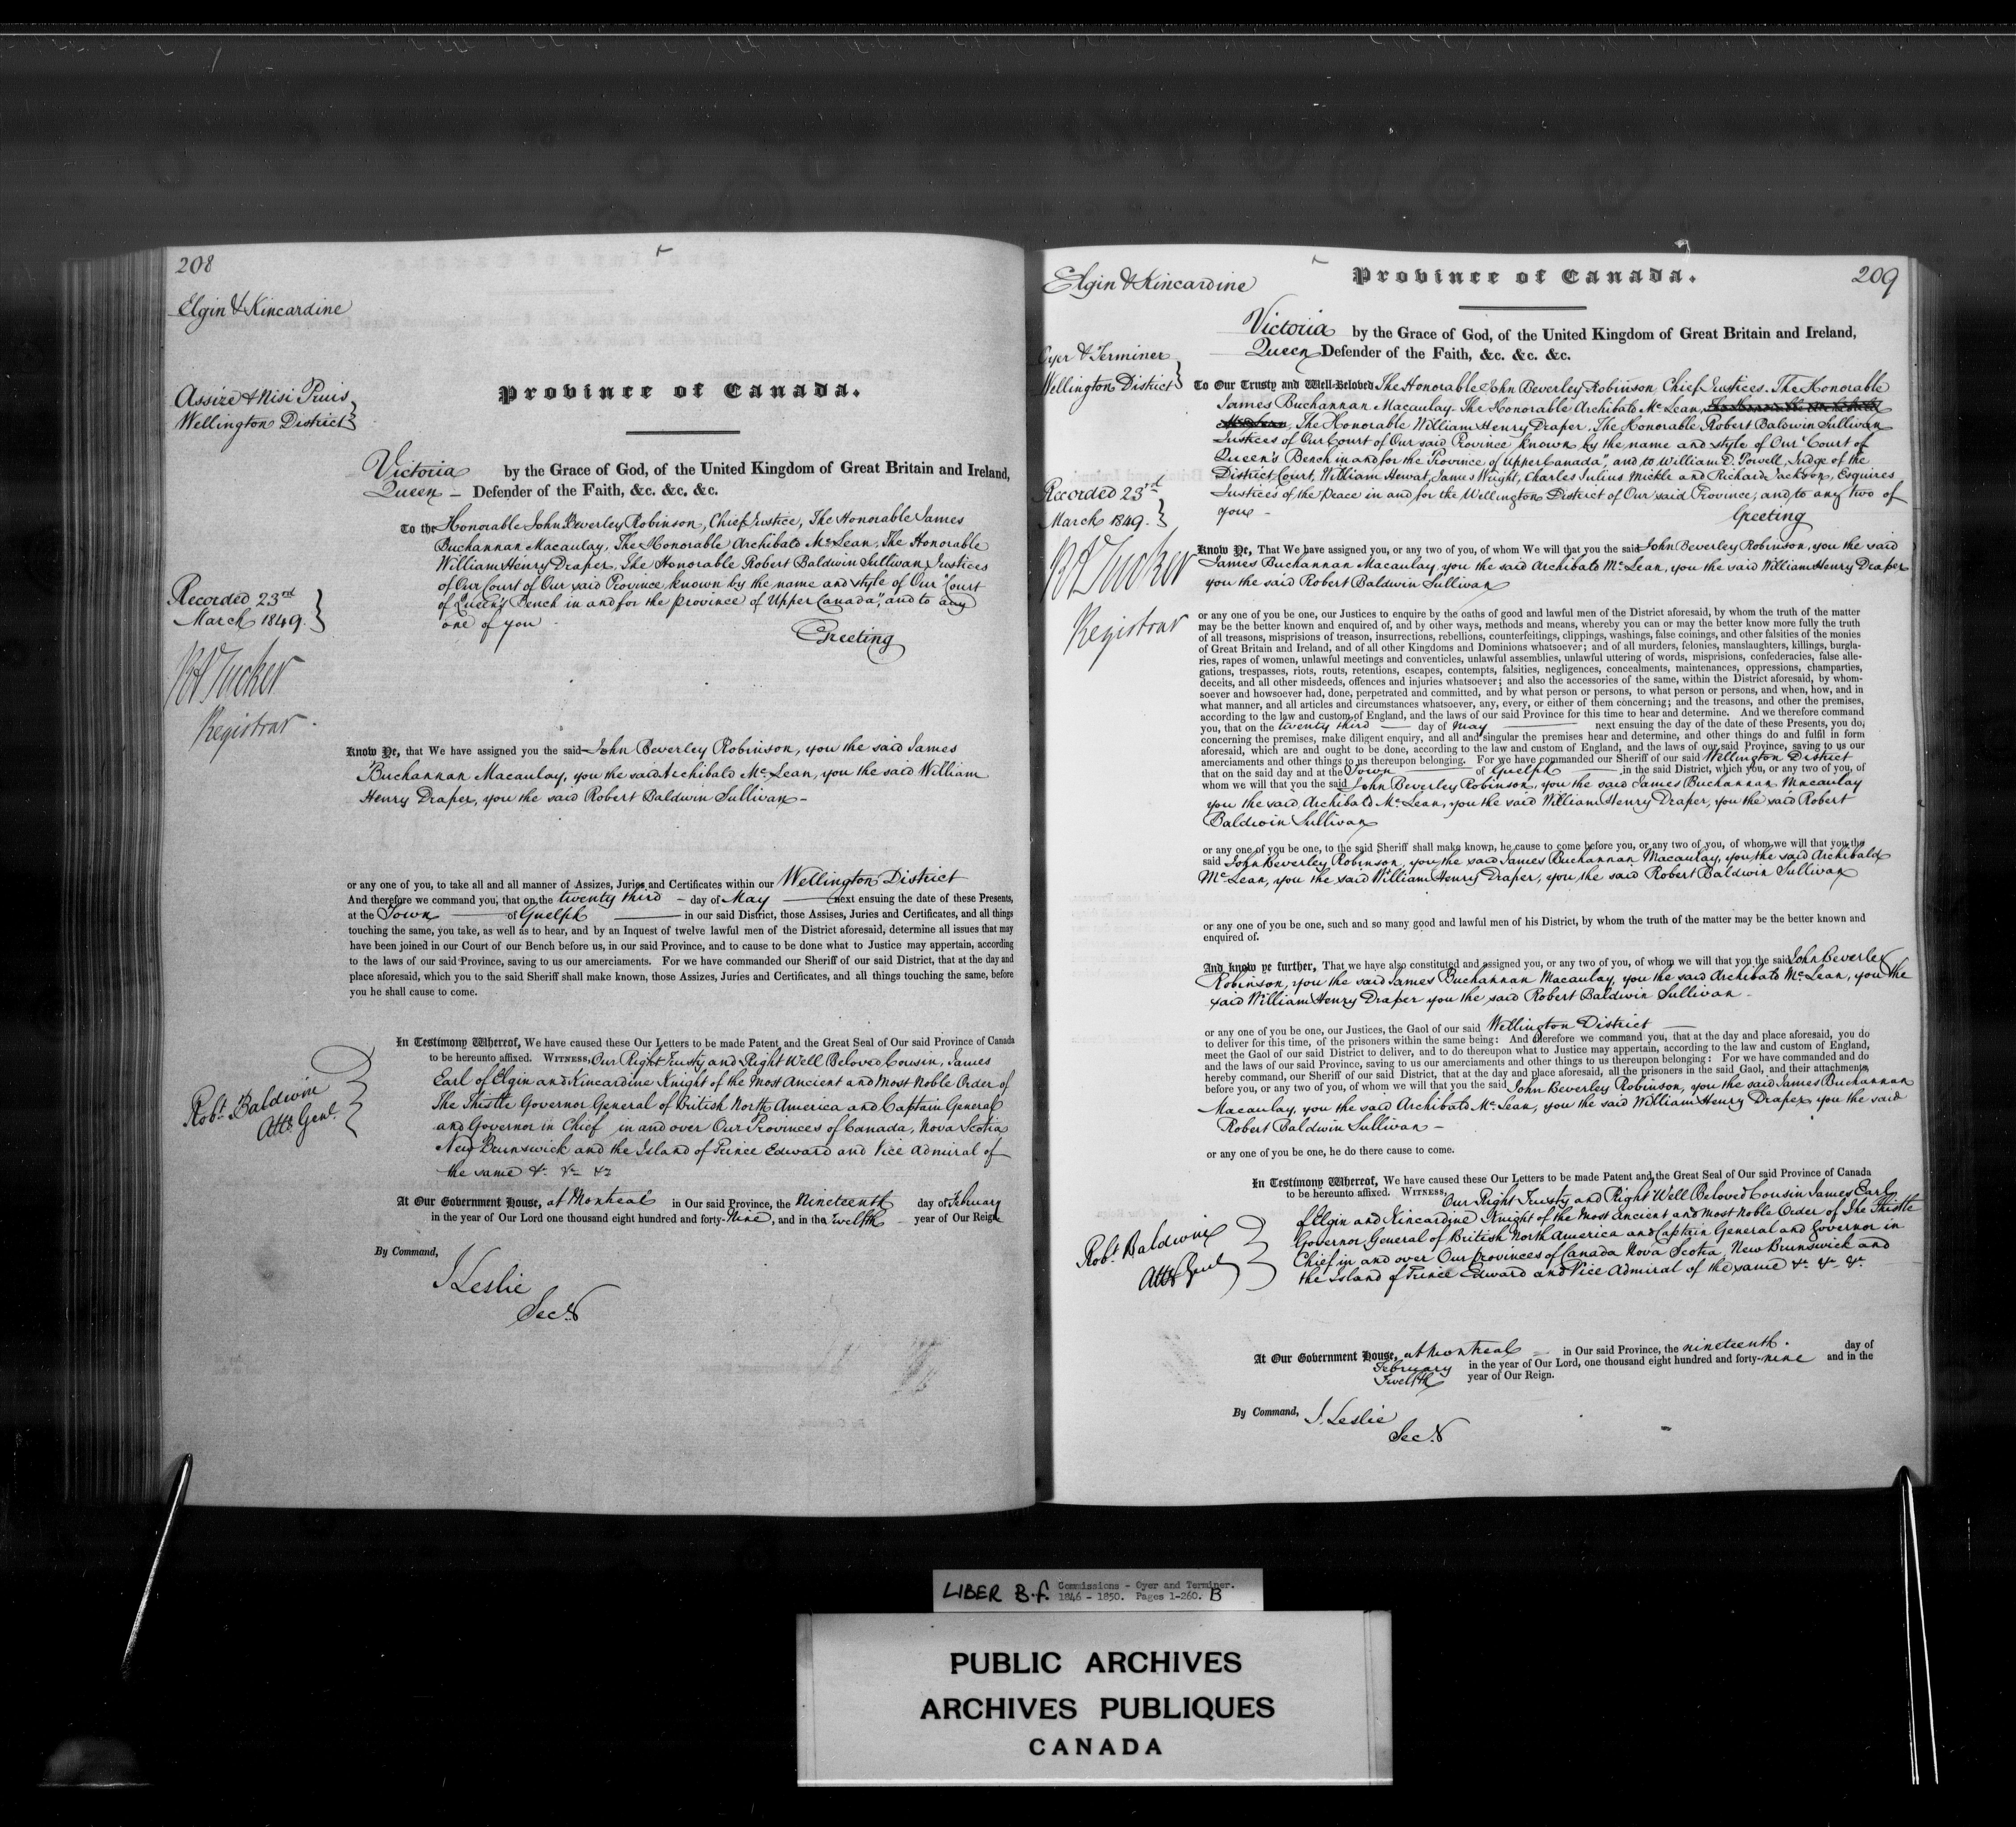 208
Elgin & Kincardine
Assize & Nisi Prius
Wellington District
Province of Canada.
Victoria by the Grace of God, of the United Kingdom of Great Britain and Ireland,
Queen – Defender of the Faith, &c. &c, &c.
To the Honorable John Beverley Robinson, Chief Justice, The Honorable James
Buchannan Macaulay, The Honorable Archibald McLean, The Honorable
William Henry Draper, The Honorable Robert Baldwin Sullivan Justices
of Our Court of Our said Province known by the name and style of Our "Court
of Queen's Bench in and for the province of Upper Canada", and to any
one of you
Greeting
Recorded 23rd
March 1849.
RA Tucker
Registrar.
Know Ye, that We have assigned you the said John Beverley Robinson, you the said James
Buchannan Macaulay, you the said Archibald McLean, you the said William
Henry Draper, you the said Robert Baldwin Sullivan –
or any one of you, to take all and all manner of Assizes, Juries and Certificates within our Wellington District
And therefore we command you, that on the twenty third – day of May next ensuing the date of these Presents,
at the Town of Guelph in our said District, those Assises, Juries and Certificates, and all things
touching the same, you take, as well as to hear, and by an Inquest of twelve lawful men of the District aforesaid, determine all issues that may
have been joined in our Court of our Bench before us, in our said Province, and to cause to be done what to Justice may appertain, according
to the laws of our said Province, saving to us our amerciaments. For we have commanded our Sheriff of our said District, that at the day and
place aforesaid, which you to the said Sheriff shall make known, those Assizes, Juries and Certificates, and all things touching the same, before
you he shall cause to come.
In Testimony Whereof, We have caused these Our Letters to be made Patent and the Great Seal of Our said Province of Canada
to be hereunto affixed. WITNESS, Our Right Trusty and Right Well Beloved Cousin, James
Earl of Elgin and Kincardine Knight of the Most Ancient and Most Noble Order of
The Thistle Governor General of British North America and Captain General
and Governor in Chief in and over Our Provinces of Canada, Nova Scotia
New Brunswick and the Island of Prince Edward and Vice Admiral of
the same &c &c &c
Robt. Baldwin
Atty. Genl.
At Our Government House, at Montreal in Our said Province, the Nineteenth day of February
in the year of Our Lord one thousand eight hundred and forty-Nine, and in the Twelfth year of Our Reign
By Command,
J Leslie
Secy.
Elgin & Kincardine
Province of Canada.
209
Victoria by the Grace of God, of the United Kingdom of Great Britain and Ireland,
Queen Defender of the Faith, &c. &c. &c.
Oyer & Terminer
Wellington District
To Our Trusty and Well-Beloved The Honorable John Beverley Robinson, Chief Justices. The Honorable
James Buchannan Macaulay. The Honorable Archibald McLean,
The Honorable William Henry Draper. The Honorable Robert Baldwin Sullivan
Justices of Our Court of Our said Province known by the name and style of Our "Court of
Queen's Bench in and for the Province of Upper Canada", and to William D. Powell, Judge of the
District Court, William Hewat, James Wright, Charles Julius Mickle and Richard Jackson, Esquires
Justices of the Peace in and for the Wellington District of Our said Province, and to any two of
you –
Greeting
Recorded 23rd
March 1849.
RA Tucker
Registrar
Know Ye, That We have assigned you, or any two of you, of whom We will that you the said John Beverley Robinson, you the said
James Buchannan Macaulay, you the said Archibald McLean, you the said William Henry Draper
you the said Robert Baldwin Sullivan
or any one of you be one, our Justices to enquire by the oaths of good and lawful men of the District aforesaid, by whom the truth of the matter
may be the better known and enquired of, and by other ways, methods and means, whereby you can or may the better know more fully the truth
of all treasons, misprisions of treason, insurrections, rebellions, counterfeitings, clippings, washings, false coinings, and other falsities of the monies
of Great Britain and Ireland, and of all other Kingdoms and Dominions whatsoever; and of all murders, felonies, manslaughters, killings, burgla-
ries, rapes of women, unlawful meetings and conventicles, unlawful assemblies, unlawful uttering of words, misprisions, confederacies, false alle-
gations, trespasses, riots, routs, retentions, escapes, contempts, falsities, negligences, concealments, maintenances, oppressions, champarties,
deceits, and all other misdeeds, offences and injuries whatsoever; and also the accessories of the same, within the District aforesaid, by whom-
soever and howsoever had, done, perpetrated and committed, and by what person or persons, to what person or persons, and when, how, and in
what manner, and all articles and circumstances whatsoever, any, every, or either of them concerning; and the treasons, and other the premises,
according to the law and custom of England, and the laws of our said Province for this time to hear and determine. And we therefore command
you, that on the twenty third day of May next ensuing the day of the date of these Presents, you do,
concerning the premises, make diligent enquiry, and all and singular the premises hear and determine, and other things do and fulfil in form
aforesaid, which are and ought to be done, according to the law and custom of England, and the laws of our said Province, saving to us our
amerciaments and other things to us thereupon belonging. For we have commanded our Sheriff of our said Wellington District
that on the said day and at the Town of Guelph in the said District, which you, or any two of you, of
whom we will that you the said John Beverley Robinson, you the said James Buchannan Macaulay
you the said Archibald McLean, you the said William Henry Draper, you the said Robert
Baldwin Sullivan
or any one of you be one, to the said Sheriff shall make known, he cause to come before you, or any two of you, of whom we will that you the
said John Beverley Robinson, you the said James Buchannan Macaulay, you the said Archibald
McLean, you the said William Henry Draper, you the said Robert Baldwin Sullivan
or any one of you be one, such and so many good and lawful men of his District, by whom the truth of the matter may be the better known and
enquired of.
And know ye further, That we have also constituted and assigned you, or any two of you, of whom we will that you the said John Beverley
Robinson, you the said James Buchannan Macaulay, you the said Archibald McLean, you the
said William Henry Draper you the said Robert Baldwin Sullivan –
or any one of you be one, our Justices, the Gaol of our said Wellington District
to deliver for this time, of the prisoners within the same being: And therefore we command you, that at the day and place aforesaid, you do
meet the Gaol of our said District to deliver, and to do thereupon what to Justice may appertain, according to the law and custom of England,
and the laws of our said Province, saving to us our amerciaments and other things to us thereupon belonging: For we have commanded and do
hereby command, our Sheriff of our said District, that at the day and place aforesaid, all the prisoners in the said Gaol, and their attachments,
before you, or any two of you, of whom we will that you the said John Beverley Robinson, you the said James Buchannan
Macaulay, you the said Archibald McLean, you the said William Henry Draper you the said
Robert Baldwin Sullivan –
or any one of you be one, he do there cause to come.
In Testimony Whereof, We have caused these Our Letters to be made Patent and the Great Seal of Our said Province of Canada
to be hereunto affixed. WITNESS, Our Right Trusty and Right Well Beloved Cousin James Earl
of Elgin and Kincardine Knight of the Most Ancient and Most Noble Order of The Thistle
Governor General of British North America and Captain General and Governor in
Chief in and over Our Provinces of Canada Nova Scotia, New Brunswick and
the Island of Prince Edward and Vice Admiral of the same &c &c &c
Robt. Baldwin
Atty Genl
At Our Government House, at Montreal in Our said Province, the nineteenth day of
February in the year of Our Lord, one thousand eight hundred and forty-nine and in the
Twelfth year of Our Reign.
By Command, J. Leslie
Secy.
LIBER B.f. Commissions - Oyer and Terminer.
1846 - 1850. Pages 1-260. B
PUBLIC ARCHIVES
ARCHIVES PUBLIQUES
CANADA